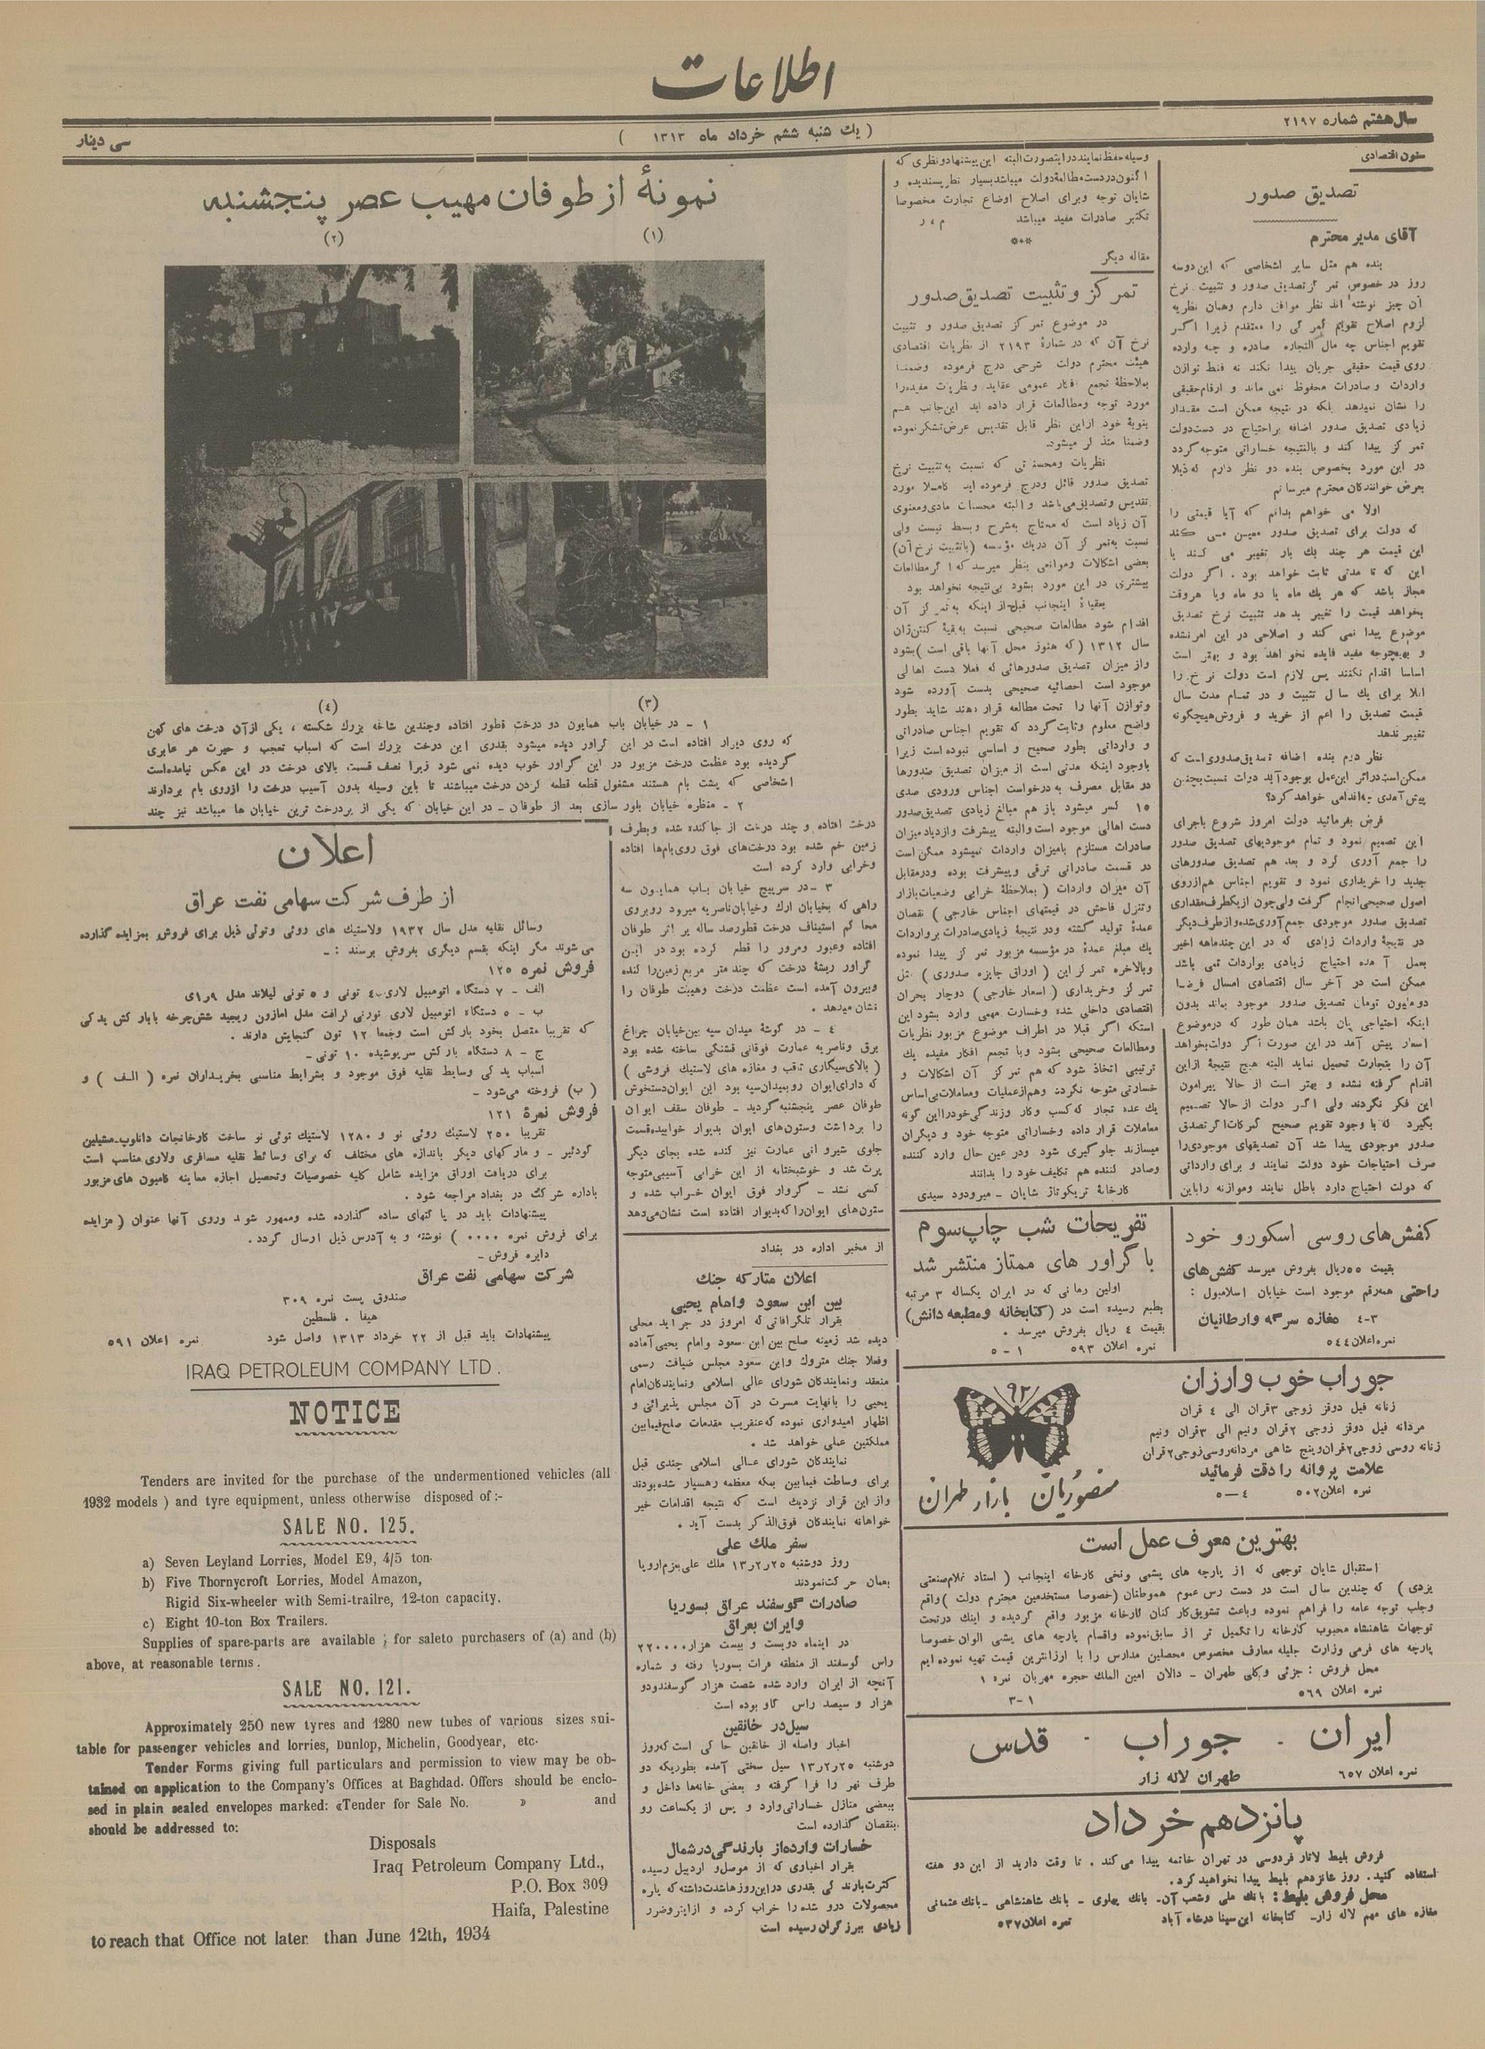 اطلاعات
سال هشتم شماره ۲۱۹۷
( یك شنبه ششم خرداد ماه ۱۳۱۳ )
سی دینار
ستون اقتصادی
تصدیق صدور
آقای مدیر محترم
بنده هم مثل سایر اشخاصی که این دوسه
روز در خصوص تمرکز تصدیق صدور و تثبیت نرخ
آن چیز نوشته اند نظر موافق دارم وهمان نظریه
لزوم اصلاح تقویم گمرکی را معتقدم زیرا اگر
تقویم اجناس چه مال التجاره صادره و چه وارده
روی قیمت حقیقی جریان پیدا نکند نه فقط توازن
واردات و صادرات محفوظ نمی ماند و ارقام حقیقی
را نشان نمیدهد بلکه در نتیجه ممکن است مقدار
زیادی تصدیق صدور اضافه براحتیاج در دست دولت
تمرکز پیدا کند و بالنتیجه خساراتی متوجه گردد
در این مورد بخصوص بنده دو نظر دارم که ذیلا
بعرض خوانندگان محترم میرسانم
اولا می خواهم بدانم که آیا قیمتی را
که دولت برای تصدیق صدور معین می کند
این قیمت هر چند یك بار تغییر می کند یا
این که تا مدتی ثابت خواهد بود . اگر دولت
مجاز باشد که هر یك ماه یا دو ماه ویا هروقت
بخواهد قیمت را تغییر بدهد تثبیت نرخ تصدیق
موضوع پیدا نمی کند و اصلاحی در این امر نشده
و بهیچوجه مفید فایده نخواهد بود و بهتر است
اساسا اقدام نکنند پس لازم است دولت نرخ را
اقلا برای یك سال تثبیت و در تمام مدت سال
قیمت تصدیق را اعم از خرید و فروش هیچگونه
تغییر ندهد
نظر دوم بنده اضافه تصدیق صدوری است که
ممکن است در اثر این عمل بوجود آید دولت نسبت بچنین
پیش آمدی چه اقدامی خواهد کرد؟
فرض بفرمائید دولت امروز شروع باجرای
این تصمیم نمود و تمام موجودیهای تصدیق صدور
را جمع آوری کرد و بعد هم تصدیق صدورهای
جدید را خریداری نمود و تقویم اجناس هم از روی
اصول صحیحی انجام گرفت ولی چون از یکطرف مقداری
تصدیق صدور موجودی جمع آوری شده و از طرف دیگر
در نتیجهٔ واردات زیادی که در این چند ماهه اخیر
بعمل آمده احتیاج زیادی بواردات نمی باشد
ممکن است در آخر سال اقتصادی امسال فرضا
دو ملیون تومان تصدیق صدور موجود بماند بدون
اینکه احتیاجی بآن باشد همان طور که در موضوع
اسعار پیش آمد در این صورت اگر دولت بخواهد
آن را بتجارت تحمیل نماید البته هیچ نتیجهٔ از این
اقدام گرفته نشده و بهتر است از حالا پیرامون
این فکر نگردند ولی اگر دولت از حالا تصمیم
بگیرد که با وجود تقویم صحیح گمرکات اگر تصدیق
صدور موجودی پیدا شد آن تصدیقهای موجودی را
صرف احتیاجات خود دولت نمایند و برای وارداتی
که دولت احتیاج دارد باطل نمایند وموازنه را باین
وسیله حفظ نمایند در اینصورت البته این پیشنهاد و نظری که
اکنون در دست مطالعهٔ دولت میباشد بسیار نظر پسندیده و
شایان توجه وبرای اصلاح اوضاع تجارت مخصوصا
تکثیر صادرات مفید میباشد م ، ر
***
مقاله دیگر
تمرکز و تثبیت تصدیق صدور
در موضوع تمرکز تصدیق صدور و تثبیت
نرخ آن که در شمارهٔ ۲۱۹۳ از نظریات اقتصادی
هیئت محترم دولت شرحی درج فرموده وضمنا
بملاحظهٔ تجمع افکار عمومی عقاید ونظریات مفیده را
مورد توجه ومطالعات قرار داده اید این جانب هم
بنوبهٔ خود از این نظر قابل تقدیس عرض تشکر نموده
وضمنا متذکر میشود.
نظریات ومحسناتی که نسبت به تثبیت نرخ
تصدیق صدور قائل ودرج فرموده اید کاملا مورد
تقدیس وتصدیق می باشد و البته محسنات مادی ومعنوی
آن زیاد است که محتاج به شرح و بسط نیست ولی
نسبت به تمرکز آن در یك مؤسسه (با تثبیت نرخ آن)
بعضی اشکالات وموانعی بنظر میرسد که اگر مطالعات
بیشتری در این مورد بشود بی نتیجه نخواهد بود
بعقیدهٔ اینجانب قبل از اینکه به تمرکز آن
اقدام شود مطالعات صحیحی نسبت به بقیهٔ کنتنژان
سال ۱۳۱۲ (که هنوز محل آنها باقی است) بشود
واز میزان تصدیق صدورهائی که فعلا دست اهالی
موجود است احصائیه صحیحی بدست آورده شود
وتوازن آنها را تحت مطالعه قرار دهند شاید بطور
واضح معلوم وثابت گردد که تقویم اجناس صادراتی
و وارداتی بطور صحیح و اساسی نبوده است زیرا
باوجود اینکه مدتی است از میزان تصدیق صدورها
در مقابل مصرف به درخواست اجناس ورودی صدی
۱۵ کسر میشود باز هم مبالغ زیادی تصدیق صدور
دست اهالی موجود است والبته پیشرفت وازدیاد میزان
صادرات مستلزم بامیزان واردات نمیشود ممکن است
در قسمت صادراتی ترقی وپیشرفت بوده ودر مقابل
آن میزان واردات ( بملاحظهٔ خرابی وضعیات بازار
وتنزل فاحش در قیمتهای اجناس خارجی ) نقصان
عمدهٔ تولید گشته ودر نتیجهٔ زیادی صادرات بر واردات
یك مبلغ عمدهٔ در مؤسسه مزبور تمرکز پیدا نموده
وبالاخره تمرکز این ( اوراق جایزه صدوری ) مثل
تمرکز وخریداری ( اسعار خارجی ) دوچار بحران
اقتصادی داخلی شده وخسارت مهمی وارد بشود این
استکه اگر قبلا در اطراف موضوع مزبور نظریات
ومطالعات صحیحی بشود وبا تجمع افکار مفیده یك
ترتیبی اتخاذ شود که هم تمرکز آن اشکالات و
خسارتی متوجه نگردد وهم از عملیات ومعاملات بی اساس
یك عده تجار که کسب وکار وزندگی خود را این گونه
معاملات قرار داده وخساراتی متوجه خود و دیگران
میسازند جلوگیری شود ودر عین حال وارد کننده
وصادر کننده هم تکلیف خود را بدانند
کارخانهٔ تریکوتاژ شایان - میرودود سیدی
نمونهٔ از طوفان مهیب عصر پنجشنبه
(۱)
(۲)
(۳)
(٤)
۱ - در خیابان باب همایون دو درخت قطور افتاده وچندین شاخه بزرك شکسته ، یکی از آن درخت های کهن
که روی دیوار افتاده است در این گراور دیده میشود بقدری این درخت بزرك است که اسباب تعجب و حیرت هر عابری
گردیده بود عظمت درخت مزبور در این گراور خوب دیده نمی شود زیرا نصف قسمت بالای درخت در این عکس نیامده است
اشخاصی که پشت بام هستند مشغول قطعه قطعه کردن درخت میباشند تا باین وسیله بدون آسیب درخت را از روی بام بردارند
۲ - منظره خیابان بلور سازی بعد از طوفان - در این خیابان که یکی از پردرخت ترین خیابان ها میباشد نیز چند
درخت افتاده و چند درخت از جا کنده شده وبطرف
زمین خم شده بود درخت های فوق روی بامها افتاده
وخرابی وارد کرده است
۳ - در سرپیچ خیابان باب همایون سه
راهی که بخیابان ارك وخیابان ناصریه میرود روبروی
محاکم استیناف درخت قطور صد ساله بر اثر طوفان
افتاده وعبور ومرور را قطع کرده بود در این
گراور ریشهٔ درخت که چند متر مربع زمین را کنده
وبیرون آمده است عظمت درخت وهیبت طوفان را
نشان میدهد .
٤ - در گوشهٔ میدان سپه بین خیابان چراغ
برق وناصریه عمارت فوقانی قشنگی ساخته شده بود
( بالای سیگاری ثاقب و مغازه های لاستیك فروشی )
که دارای ایوان رو بمیدان سپه بود این ایوان دستخوش
طوفان عصر پنجشنبه گردید - طوفان سقف ایوان
را برداشت وستون های ایوان بدیوار خوابیده قسمت
جلوی شیروانی عمارت نیز کنده شده بجای دیگر
پرت شد و خوشبختانه از این خرابی آسیبی متوجه
کسی نشد - گروار فوق ایوان خراب شده و
ستون های ایوان را که بدیوار افتاده است نشان میدهد
از مخبر اداره در بغداد
اعلان متارکه جنك
بین ابن سعود وامام یحیی
بقرار تلگرافاتی که امروز در جراید محلی
دیده شد زمینه صلح بین ابن سعود وامام یحیی آماده
وفعلا جنك متروك وابن سعود مجلس ضیافت رسمی
منعقد ونمایندگان شورای عالی اسلامی ونمایندگان امام
یحیی را بانهایت مسرت در آن مجلس پذیرائی و
اظهار امیدواری نموده که عنقریب مقدمات صلح فیمابین
مملکتین عملی خواهد شد .
نمایندگان شورای عالی اسلامی چندی قبل
برای وساطت فیمابین بمکه معظمه رهسپار شده بودند
واز این قرار نزدیك است که نتیجه اقدامات خیر
خواهانه نمایندگان فوق الذکر بدست آید .
سفر ملك علی
روز دوشنبه ۱۳ر۲ر۲۵ ملك علی بعزم اروپا
بعمان حرکت نمودند
صادرات گوسفند عراق بسوریا
وایران بعراق
در اینماه دویست و بیست هزار ۲۲۰۰۰۰
راس گوسفند از منطقه فرات بسوریا رفته و شماره
آنچه از ایران وارد شده شصت هزار گوسفند ودو
هزار و سیصد راس گاو بوده است
سیل در خانقین
اخبار واصله از خانقین حاکی است که روز
دوشنبه ۱۳ر۲ر۲۵ سیل سختی آمده بطوریکه دو
طرف نهر را فرا گرفته و بعضی خانه ها داخل و
ببعضی منازل خساراتی وارد و پس از یکساعت رو
بنقصان گذارده است
خسارات وارده از بارندگی در شمال
بقرار اخباری که از موصل و اردبیل رسیده
کثرت بارندگی بقدری در این روزها شدت داشته که پاره
محصولات درو شده را خراب کرده و از این رو ضرر
زیادی ببرزگران رسیده است
اعلان
از طرف شرکت سهامی نفت عراق
وسائل نقلیه مدل سال ۱۹۳۲ ولاستیك های روئی وتوئی ذیل برای فروش بمزایده گذارده
می شوند مگر اینکه بقسم دیگری بفروش برسند : -
فروش نمره ۱۲۵
الف - ۷ دستگاه اتومبیل لاری ٤ تونی و ۵ تونی لیلاند مدل ۹رای
ب - ۵ دستگاه اتومبیل لاری تورنی کرافت مدل امازون ریجید شش چرخه با بار کش یدکی
که تقریبا متصل بخود بارکش است وجمعا ۱۲ تون گنجایش دارند .
ج - ۸ دستگاه بارکش سرپوشیده ۱۰ تونی -
اسباب یدکی وسایط نقلیه فوق موجود و بشرایط مناسبی بخریداران نمره ( الف ) و
( ب ) فروخته می شود -
فروش نمرهٔ ۱۲۱
تقریبا ۲۵۰ لاستیك روئی نو و ۱۲۸۰ لاستیك توئی نو ساخت کارخانجات دانلوپ-مشیلین
گودئیر - و مارکهای دیگر باندازه های مختلف که برای وسائط نقلیه مسافری ولاری مناسب است
برای دریافت اوراق مزایده شامل کلیه خصوصیات وتحصیل اجازه معاینه کامیون های مزبور
باداره شرکت در بغداد مراجعه شود .
پیشنهادات باید در پاکتهای ساده گذارده شده وممهور شوند وروی آنها عنوان ( مزایده
برای فروش نمره ۰۰۰۰ ) نوشته و به آدرس ذیل ارسال گردد .
دایره فروش -
شرکت سهامی نفت عراق
صندوق پست نمره ۳۰۹
هیفا . فلسطین
پیشنهادات باید قبل از ۲۲ خرداد ۱۳۱۳ واصل شود
نمره اعلان ۵۹۱
IRAQ PETROLEUM COMPANY LTD.
NOTICE
Tenders are invited for the purchase of the undermentioned vehicles (all
1932 models ) and tyre equipment, unless otherwise disposed of :-
SALE NO. 125.
a) Seven Leyland Lorries, Model E9, 4/5 ton.
b) Five Thornycroft Lorries, Model Amazon,
Rigid Six-wheeler with Semi-trailre, 12-ton capacity.
c) Eight 10-ton Box Trailers.
Supplies of spare-parts are available ; for saleto purchasers of (a) and (b)
above, at reasonable terms.
SALE NO. 121.
Approximately 250 new tyres and 1280 new tubes of various sizes sui-
table for passenger vehicles and lorries, Dunlop, Michelin, Goodyear, etc.
Tender Forms giving full particulars and permission to view may be ob-
tained on application to the Company's Offices at Baghdad. Offers should be enclo-
sed in plain sealed envelopes marked: «Tender for Sale No. » and
should be addressed to:
Disposals
Iraq Petroleum Company Ltd.,
P.O. Box 309
Haifa, Palestine
to reach that Office not later than June 12th, 1934
کفش های روسی اسکورو خود
بقیمت ۵۵ ریال بفروش میرسد کفش های
راحتی همه رقم موجود است خیابان اسلامبول :
۳-٤ مغازه سرگه وارطانیان
نمره اعلان ۵٤٤
تفریحات شب چاپ سوم
با گراور های ممتاز منتشر شد
اولین رمانی که در ایران یکساله ۳ مرتبه
بطبع رسیده است در (کتابخانه ومطبعه دانش)
بقیمت ٤ ریال بفروش میرسد .
نمره اعلان ۵۹۳ ۱ - ۵
جوراب خوب وارزان
زنانه فیل دوقز زوجی ۳ قران الی ٤ قران
مردانه فیل دوقز زوجی ۲ قران ونیم الی ۳ قران ونیم
زنانه روسی زوجی ۲ قران وپنج شاهی مردانه روسی زوجی ۲ قران
علامت پروانه را دقت فرمائید
نمره اعلان ۵۰۲ ٤-۵
۹۲
منصوریان بازار طهران
بهترین معرف عمل است
استقبال شایان توجهی که از پارچه های پشمی ونخی کارخانه اینجانب ( استاد غلام صنعتی
یزدی ) که چندین سال است در دست رس عموم هموطنان (خصوصا مستخدمین محترم دولت ) واقع
وجلب توجه عامه را فراهم نموده وباعث تشویق کارکنان کارخانه مزبور واقع گردیده و اینك در تحت
توجهات شاهنشاه محبوب کارخانه را تکمیل تر از سابق نموده واقسام پارچه های پشمی الوان خصوصا
پارچه های فرمی وزارت جلیله معارف مخصوص محصلین مدارس را با ارزانترین قیمت تهیه نموده ایم
محل فروش : جزئی وکلی طهران - دالان امین الملك حجره مهربان نمره ۱
نمره اعلان ۵۶۹ ۱-۳
ایران . جوراب . قدس
نمره اعلان ٦۵۷ طهران لاله زار
پانزدهم خرداد
فروش بلیط لاتار فردوسی در تهران خاتمه پیدا می کند . تا وقت دارید از این دو هفته
استفاده کنید . روز شانزدهم بلیط پیدا نخواهید کرد.
محل فروش بلیط : بانك ملی وشعب آن- بانك پهلوی - بانك شاهنشاهی - بانك عثمانی
مغازه های مهم لاله زار- کتابخانه ابن سینا در شاه آباد نمره اعلان ۵۳۷